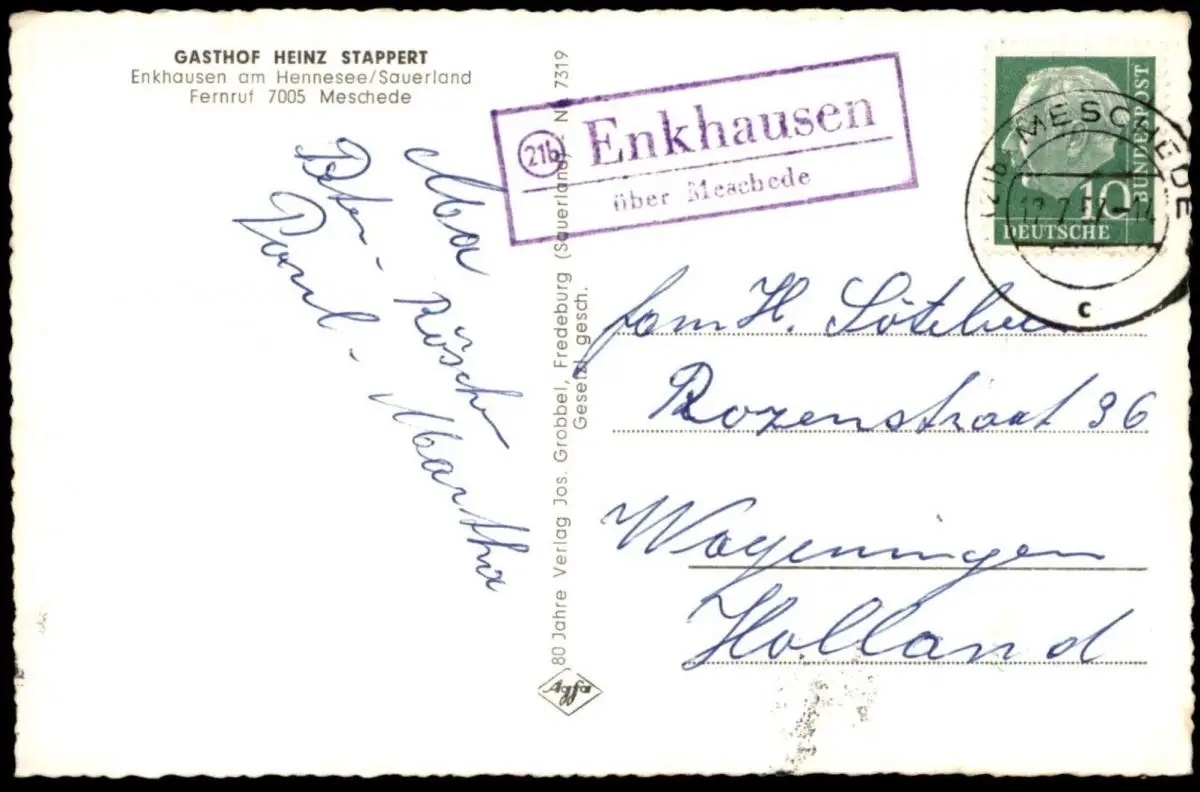 GASTHOF HEINZ STAPPERT
Enkhausen am Hennesee/Sauerland
Fernruf 7005 Meschede
Peter - Röschen
Paul - Martha
80 Jahre Verlag Jos. Grobbel, Fredeburg (Sauerland) N 7319
Gesetzl. gesch.
Agfa
21b Enkhausen
über Meschede
BUNDESPOST
10
DEUTSCHE
(21b) MESCHEDE
c
fam H.
Rozenstraat 36
Wageningen
Holland